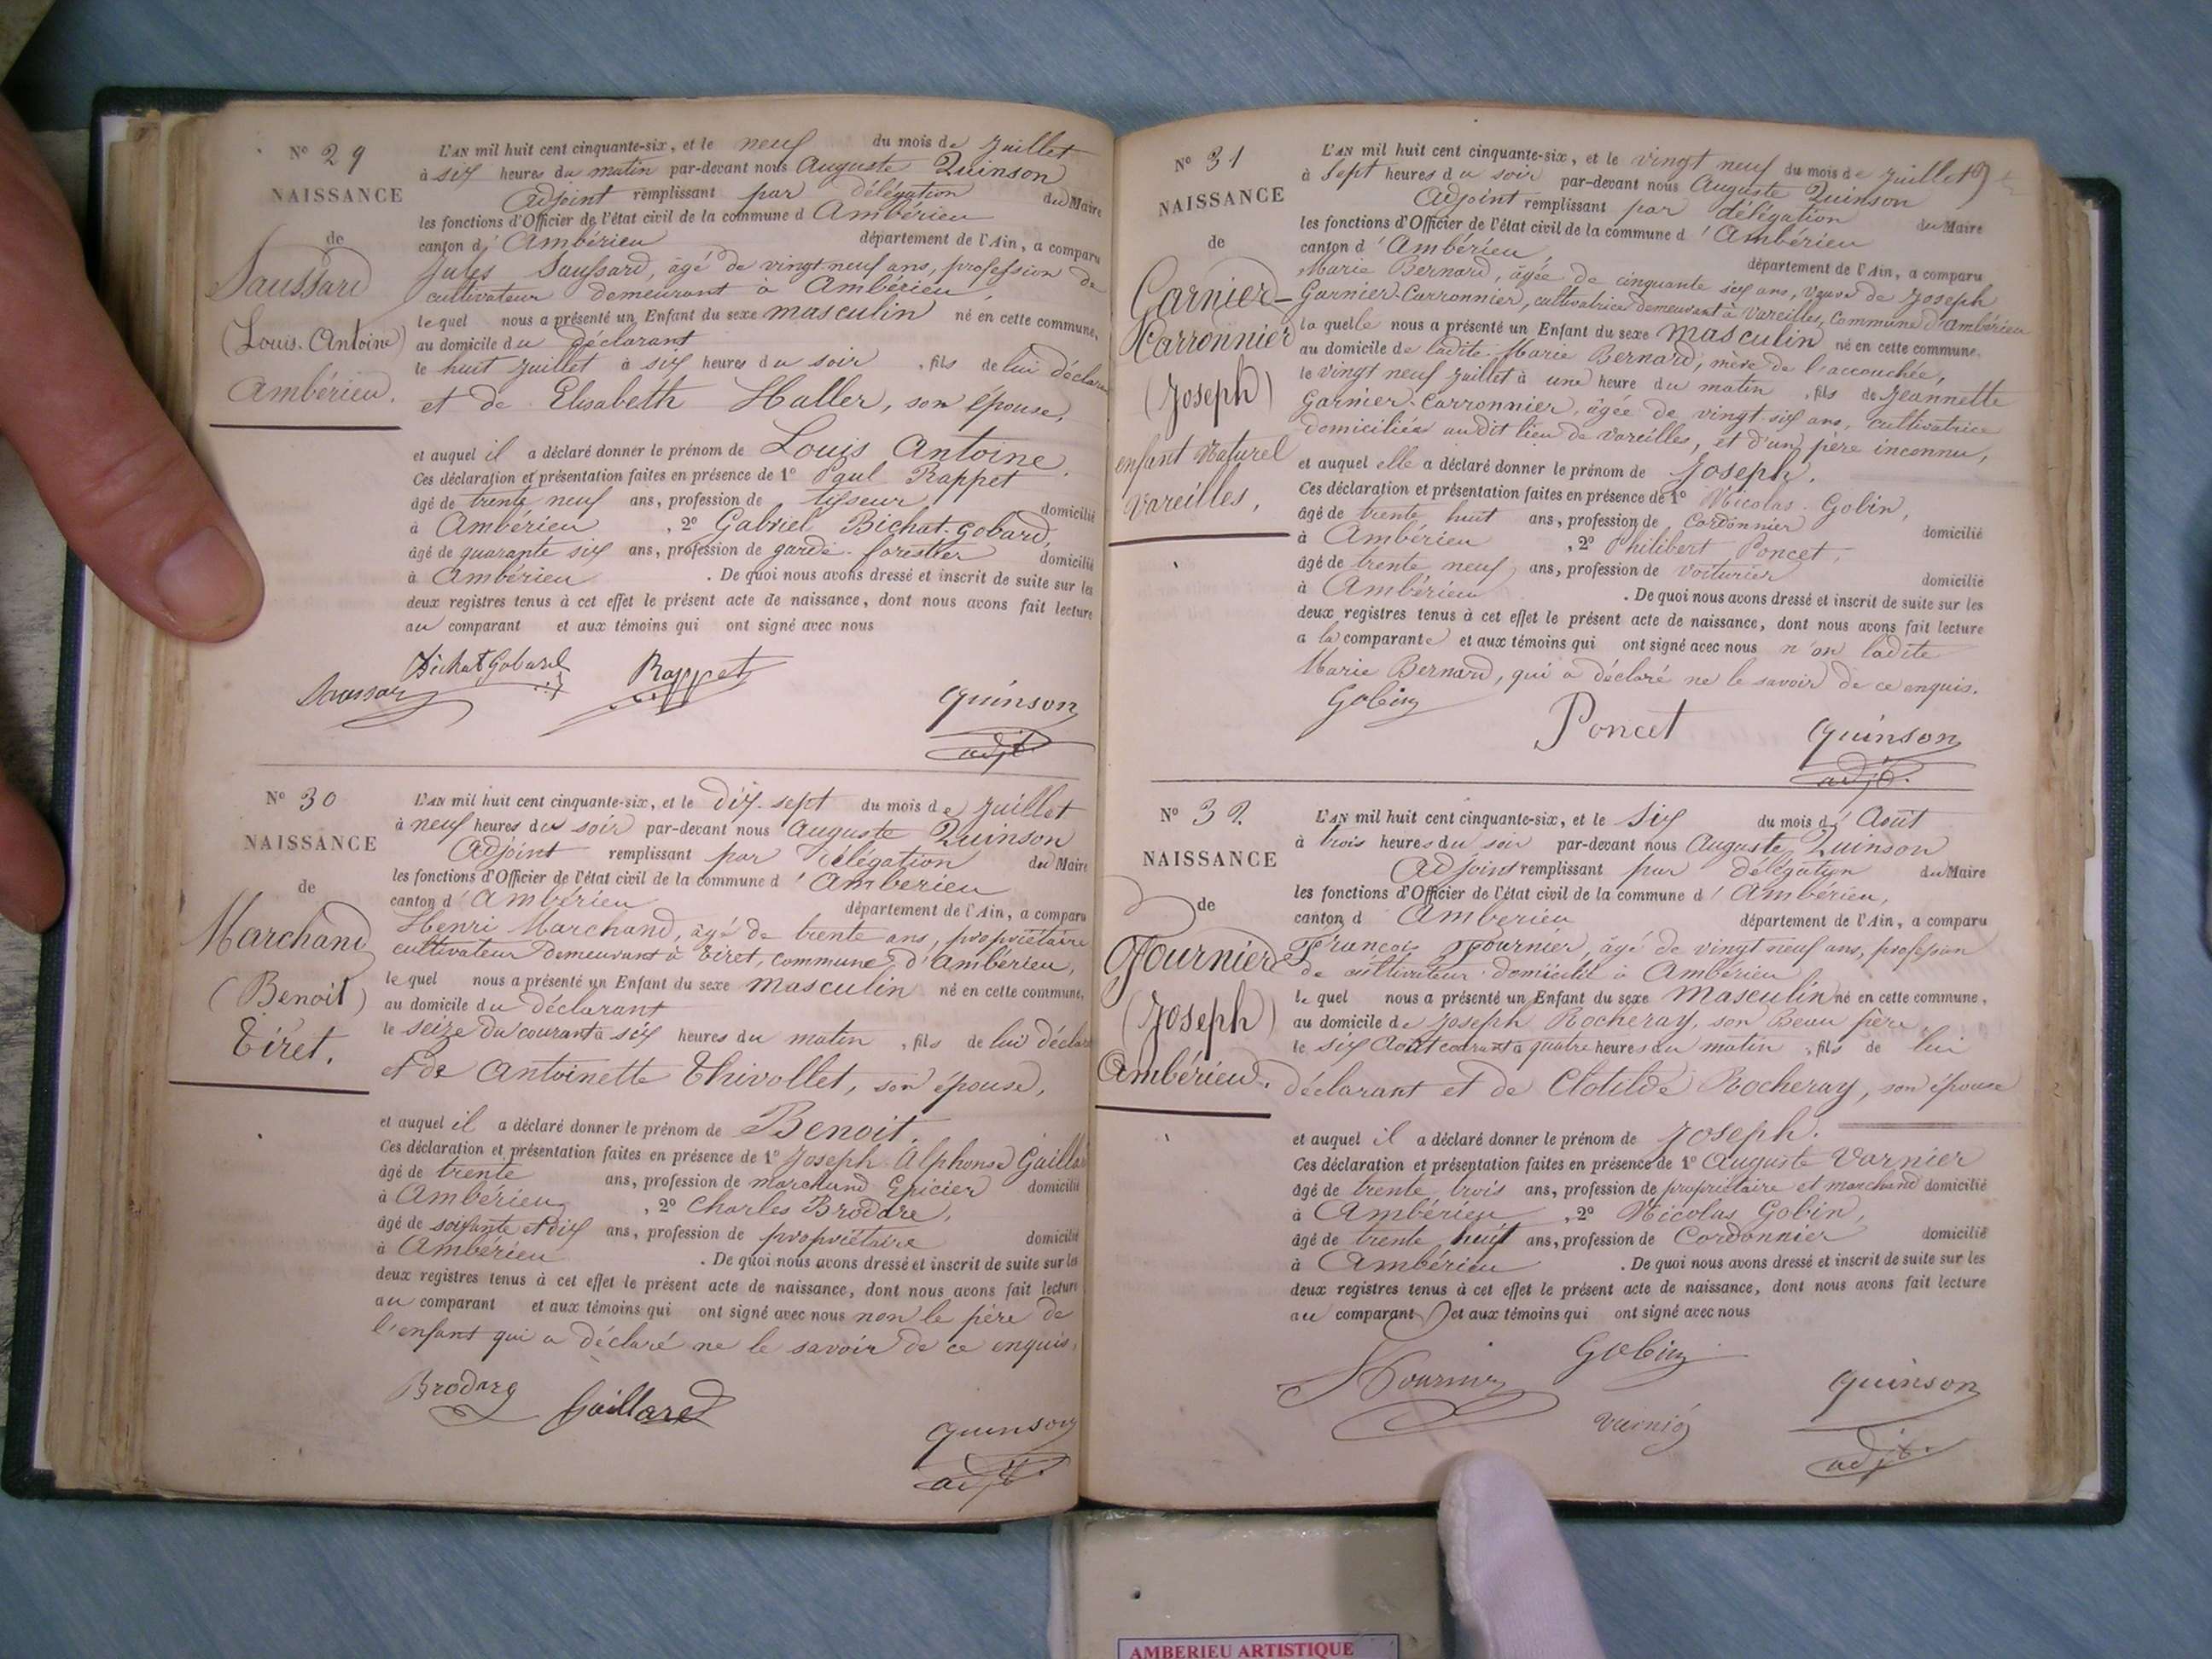 Nº 29
NAISSANCE
de
Saussard
(Louis Antoine)
Ambérieu.
L'AN mil huit cent cinquante-six, et le neuf du mois de Juillet
à six heures du matin par-devant nous Auguste Quinson
Adjoint remplissant par délégation du Maire
les fonctions d'Officier de l'état civil de la commune d Ambérieu
canton d' Ambérieu département de l'Ain, a comparu
Jules Saussard, âgé de vingt-neuf ans, profession de
cultivateur demeurant à Ambérieu,
le quel nous a présenté un Enfant du sexe masculin né en cette commune,
au domicile du déclarant
le huit Juillet à six heures du soir, fils de lui déclarant
et de Elisabeth Haller, son épouse,
et auquel il a déclaré donner le prénom de Louis Antoine.
Ces déclaration et présentation faites en présence de 1º Paul Rappet
âgé de trente neuf ans, profession de tisseur domicilié
à Ambérieu, 2º Gabriel Bichat-Gobard,
âgé de quarante six ans, profession de garde-forestier domicilié
à Ambérieu. De quoi nous avons dressé et inscrit de suite sur les
deux registres tenus à cet effet le présent acte de naissance, dont nous avons fait lecture
au comparant et aux témoins qui ont signé avec nous
Bichat Gobard
Rappet
Saussar
quinson
adjt.
Nº 30
NAISSANCE
de
Marchand
(Benoit)
Tiret.
L'AN mil huit cent cinquante-six, et le dix-sept du mois de Juillet
à neuf heures du soir par-devant nous Auguste Quinson
Adjoint remplissant par délégation du Maire
les fonctions d'Officier de l'état civil de la commune d' Ambérieu
canton d' Ambérieu département de l'Ain, a comparu
Henri Marchand, âgé de trente ans, propriétaire
cultivateur demeurant à Tiret, commune d'Ambérieu,
le quel nous a présenté un Enfant du sexe masculin né en cette commune,
au domicile du déclarant
le seize du courant à six heures du matin, fils de lui déclarant
et de Antoinette Thivollet, son épouse,
et auquel il a déclaré donner le prénom de Benoit.
Ces déclaration et présentation faites en présence de 1º Joseph Alphonse Gaillard
âgé de trente ans, profession de marchand Epicier domicilié
à Ambérieu, 2º Charles Brodare,
âgé de soixante et dix ans, profession de propriétaire domicilié
à Ambérieu. De quoi nous avons dressé et inscrit de suite sur les
deux registres tenus à cet effet le présent acte de naissance, dont nous avons fait lecture
au comparant et aux témoins qui ont signé avec nous non le père de
l'enfant qui a déclaré ne le savoir de ce enquis.
Brodare
Gaillard
quinson
adjt.
Nº 31
NAISSANCE
de
Garnier-
Carronnier
(Joseph)
enfant Naturel
Vareilles,
L'AN mil huit cent cinquante-six, et le vingt neuf du mois de Juillet
à Sept heures du soir par-devant nous Auguste Quinson
Adjoint remplissant par délégation du Maire
les fonctions d'Officier de l'état civil de la commune d' Ambérieu
canton d' Ambérieu, département de l'Ain, a comparu
Marie Bernard, âgée de cinquante six ans, Veuve de Joseph
Garnier-Carronnier, cultivatrice demeurant à Vareilles, commune d'Ambérieu
la quelle nous a présenté un Enfant du sexe Masculin né en cette commune,
au domicile de ladite Marie Bernard, mère de l'accouchée,
le vingt neuf Juillet à une heure du matin, fils de Jeannette
Garnier-Carronnier, âgée de vingt-six ans, cultivatrice
domiciliée audit lieu de Vareilles, et d'un père inconnu,
et auquel elle a déclaré donner le prénom de Joseph.
Ces déclaration et présentation faites en présence de 1º Nicolas Gobin,
âgé de trente huit ans, profession de cordonnier domicilié
à Ambérieu, 2º Philibert Poncet,
âgé de trente neuf ans, profession de Voiturier domicilié
à Ambérieu. De quoi nous avons dressé et inscrit de suite sur les
deux registres tenus à cet effet le présent acte de naissance, dont nous avons fait lecture
a la comparante et aux témoins qui ont signé avec nous non ladite
Marie Bernard, qui a déclaré ne le savoir de ce enquis.
Gobin
Poncet
quinson
adjt.
Nº 32
NAISSANCE
de
Fournier
(Joseph)
Ambérieu.
L'AN mil huit cent cinquante-six, et le six du mois d' Août
à trois heures du soir par-devant nous Auguste Quinson
Adjoint remplissant par délégation du Maire
les fonctions d'Officier de l'état civil de la commune d' Ambérieu,
canton d Ambérieu département de l'Ain, a comparu
François Fournier, âgé de vingt neuf ans, profession
de cultivateur domicilié à Ambérieu
le quel nous a présenté un Enfant du sexe Masculin né en cette commune,
au domicile de Joseph Rocheray, son Beau père,
le six Août courant à quatre heures du matin, fils de lui
déclarant et de Clotilde Rocheray, son épouse
et auquel il a déclaré donner le prénom de Joseph.
Ces déclaration et présentation faites en présence de 1º Auguste Varnier
âgé de trente trois ans, profession de propriétaire et marchand domicilié
à Ambérieu, 2º Nicolas Gobin,
âgé de trente huit ans, profession de Cordonnier domicilié
à Ambérieu. De quoi nous avons dressé et inscrit de suite sur les
deux registres tenus à cet effet le présent acte de naissance, dont nous avons fait lecture
au comparant et aux témoins qui ont signé avec nous
Gobin
Fournier
quinson
Varnié
adjt.
AMBERIEU ARTISTIQUE